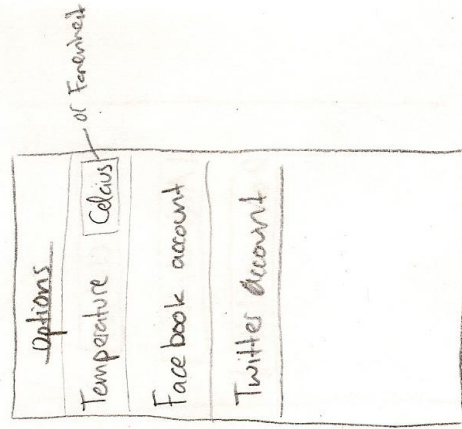 Options
Temperature Celcius or Farenheit
Facebook account
Twitter account